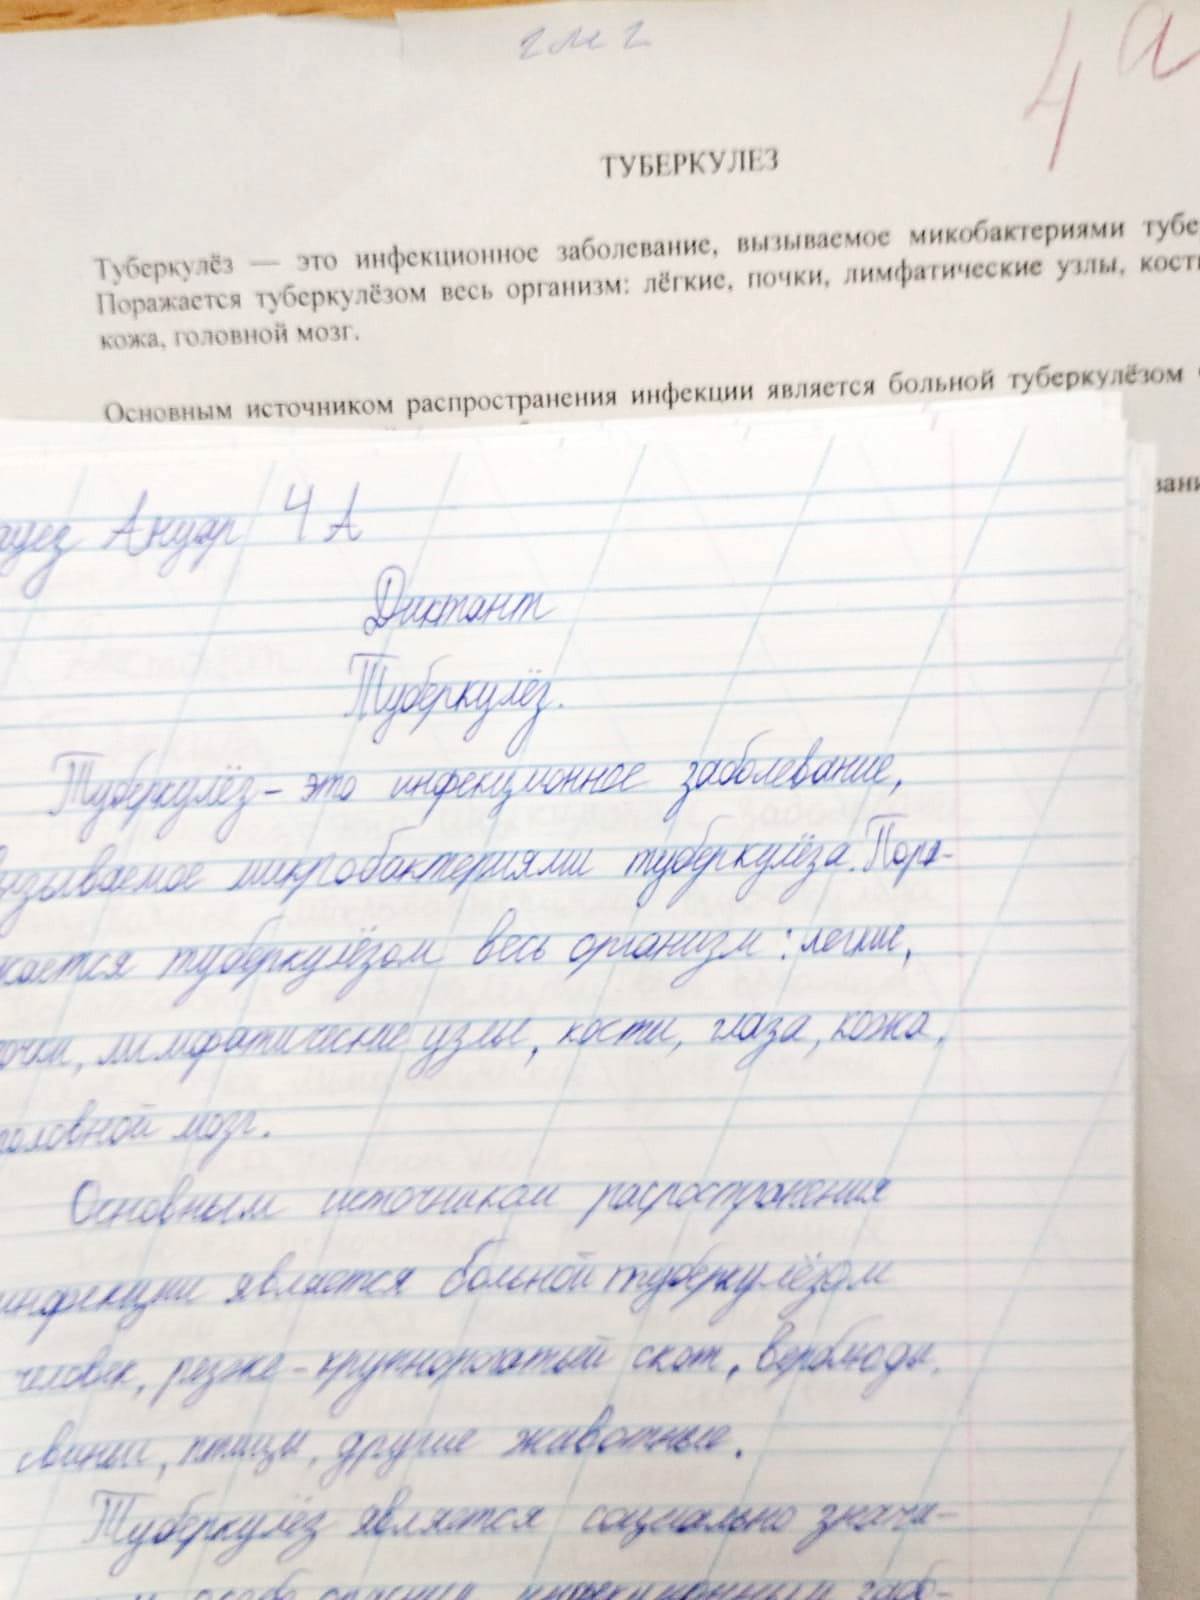 4 а
ТУБЕРКУЛЕЗ
Туберкулёз — это инфекционное заболевание, вызываемое микобактериями тубе
Поражается туберкулёзом весь организм: лёгкие, почки, лимфатические узлы, кости
кожа, головной мозг.
Основным источником распространения инфекции является больной туберкулёзом
Ануар 4 А
Диктант
Туберкулёз.
Туберкулёз - это инфекционное заболевание,
ызываемое микробактериями туберкулёза. Пора-
жается туберкулёзом весь организм: легкие,
очки, лимфатические узлы, кости, глаза, кожа,
головной мозг.
Основным источником распространения
инфекции является больной туберкулёзом
человек, реже - крупнорогатый скот, верблюды,
свиньи, птицы, другие животные.
Туберкулёз является социально значи-
инфекционным забо-